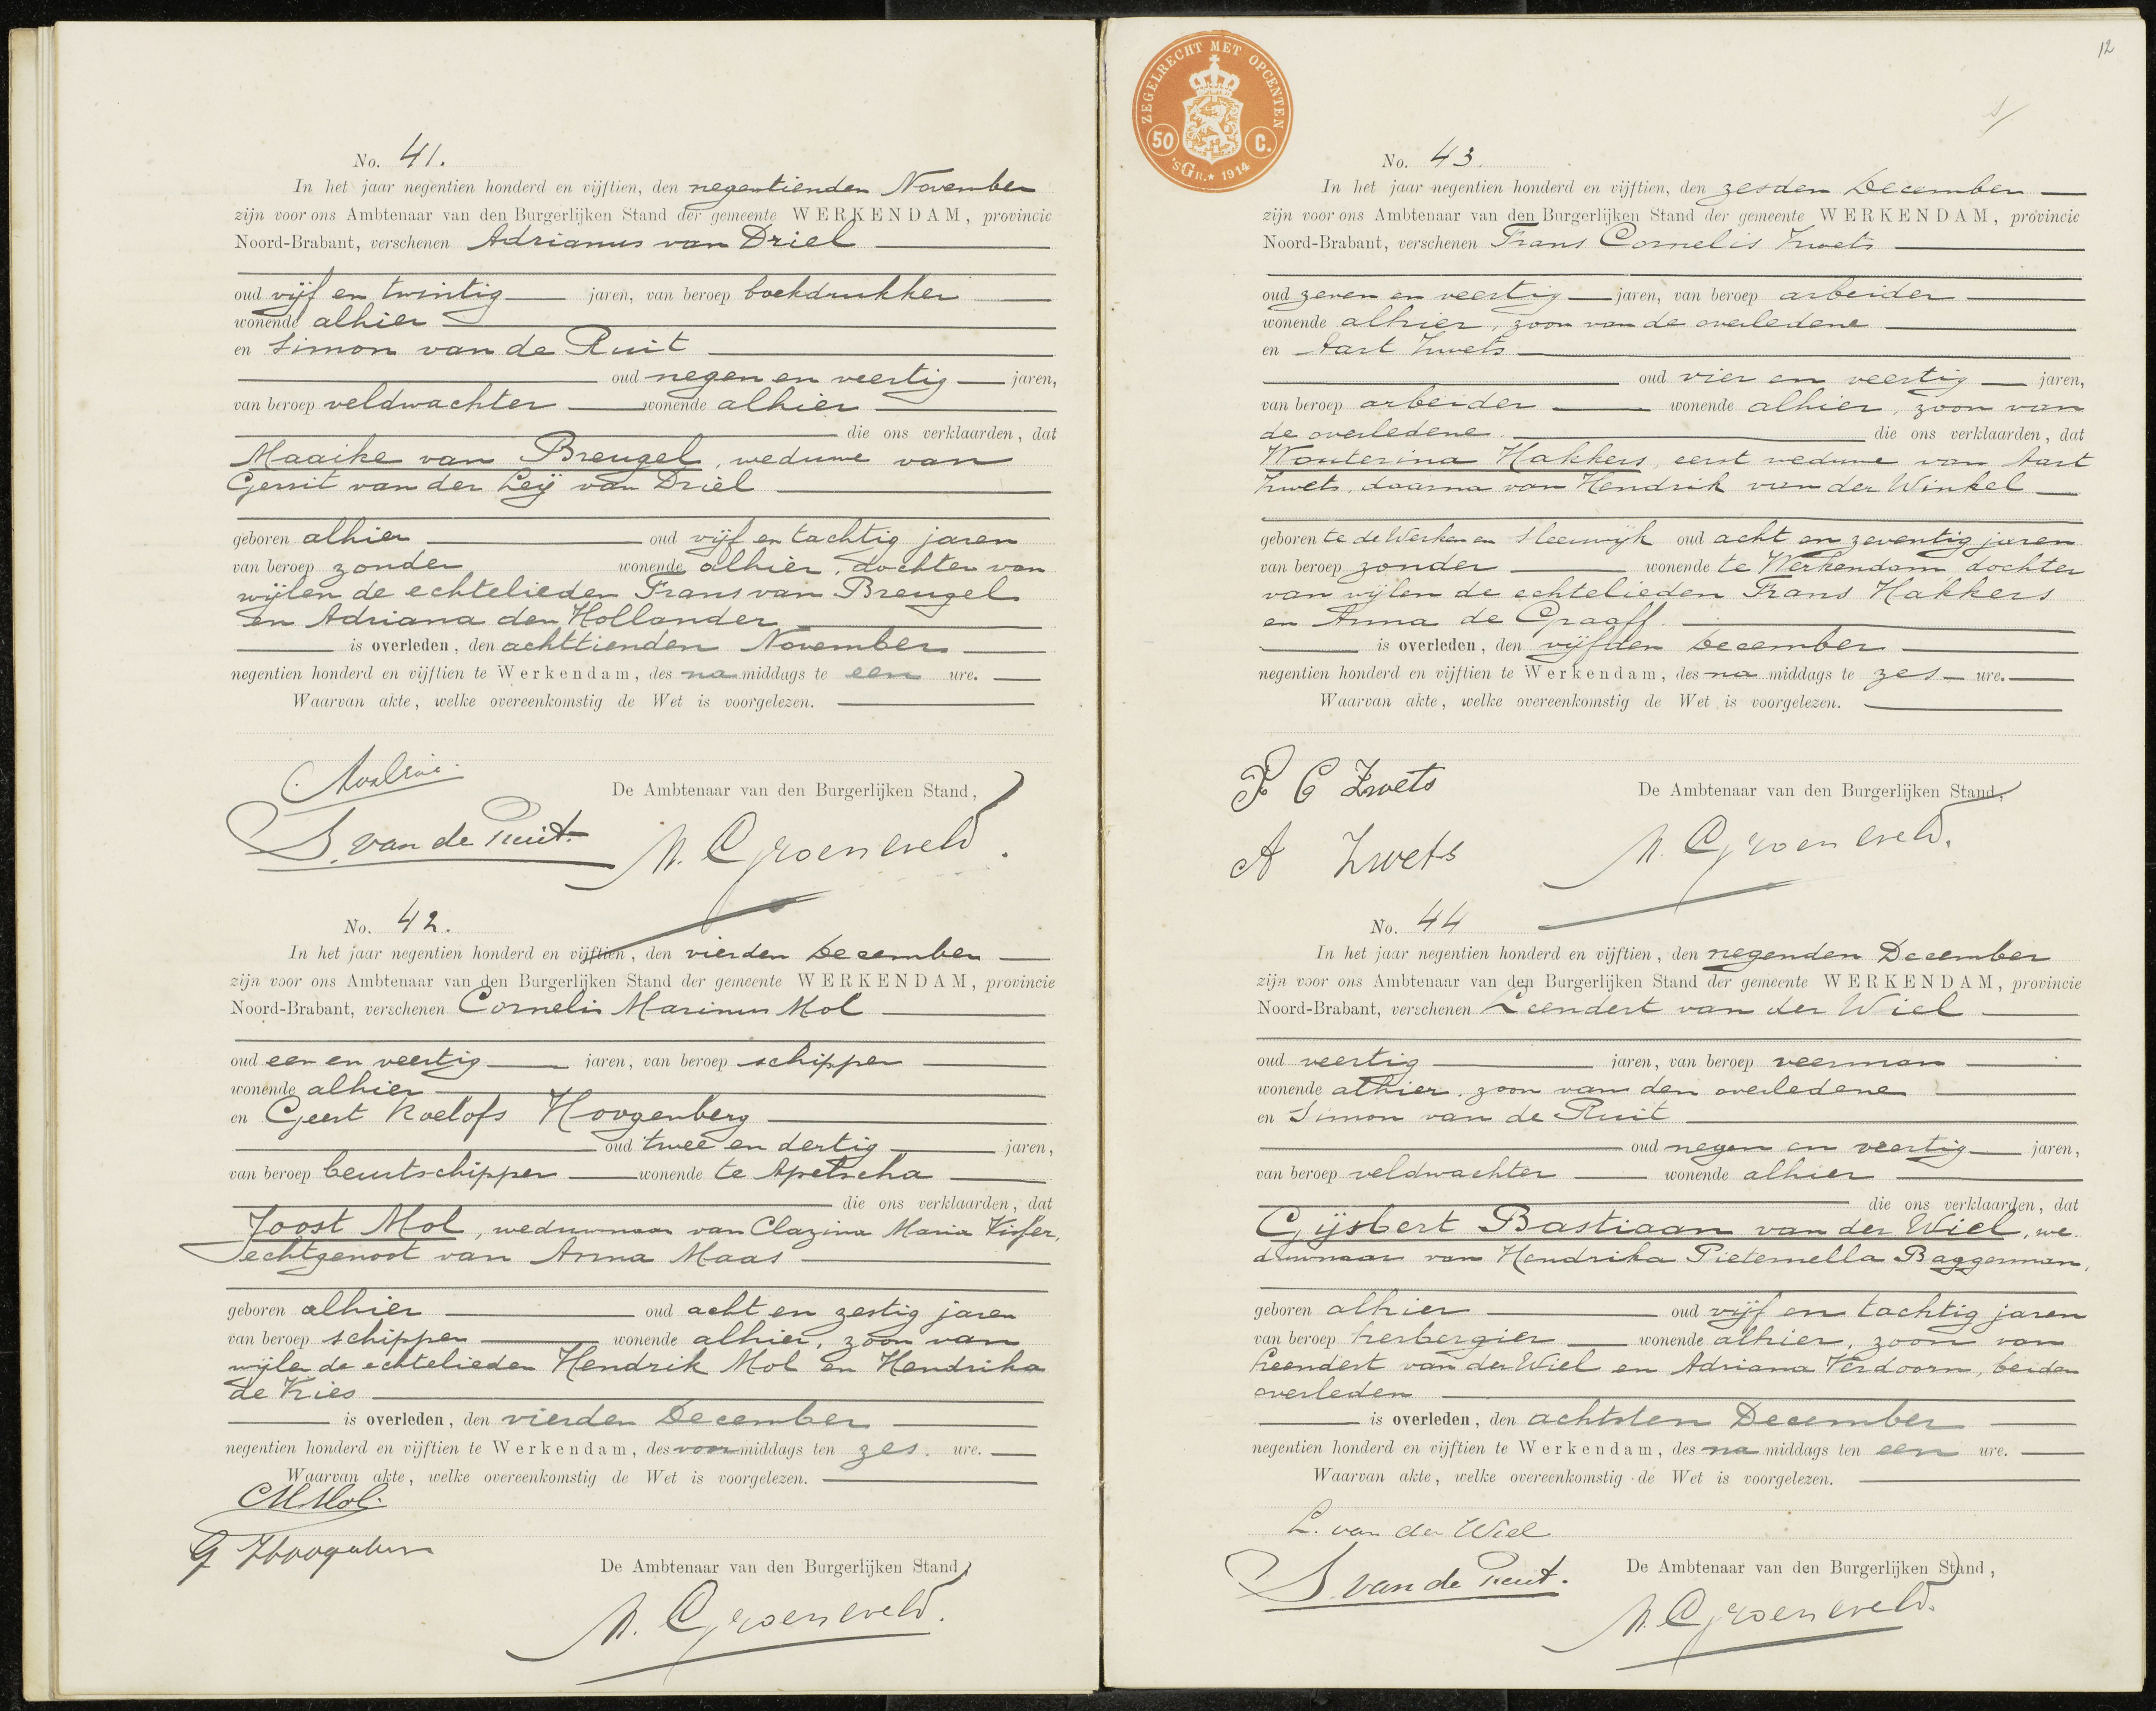 No. 41.
In het jaar negentien honderd en vijftien, den negentienden November
zijn voor ons Ambtenaar van den Burgerlijken Stand der gemeente WERKENDAM, provincie
Noord-Brabant, verschenen Adrianus van Driel
oud vijf en twintig jaren, van beroep boekdrukker
wonende alhier
en Simon van de Ruit
oud negen en veertig jaren,
van beroep veldwachter wonende alhier
die ons verklaarden, dat
Maaike van Breugel, weduwe van
Gerrit van der Leij van Driel
geboren alhier oud vijf en tachtig jaren
van beroep zonder wonende alhier, dochter van
wijlen de echtelieden Frans van Breugel
en Adriana den Hollander
is overleden, den achttienden November
negentien honderd en vijftien te Werkendam, des na middags te een ure.
Waarvan akte, welke overeenkomstig de Wet is voorgelezen.
De Ambtenaar van den Burgerlijken Stand,
S. van de Ruit.
N. Groeneveld.
No. 42.
In het jaar negentien honderd en vijftien, den vierden December
zijn voor ons Ambtenaar van den Burgerlijken Stand der gemeente WERKENDAM, provincie
Noord-Brabant, verschenen Cornelis Marinus Mol
oud een en veertig jaren, van beroep schipper
wonende alhier
en Geert Roelofs Hoogenberg
oud twee en dertig jaren,
van beroep beurtschipper wonende te Apelscha
die ons verklaarden, dat
Joost Mol, weduwnaar van Clazina Maria
echtgenoot van Anna Maas
geboren alhier oud acht en zestig jaren
van beroep schipper wonende alhier, zoon van
wijlen de echtelieden Hendrik Mol en Hendrika
de Vries
is overleden, den vierden December
negentien honderd en vijftien te Werkendam, des voor middags ten zes. ure.
Waarvan akte, welke overeenkomstig de Wet is voorgelezen.
CM Mol.
G
De Ambtenaar van den Burgerlijken Stand,
N. Groeneveld.
12
ZEGELRECHT MET OPCENTEN
50 C.
'SGR. * 1914
No. 43.
In het jaar negentien honderd en vijftien, den zesden December
zijn voor ons Ambtenaar van den Burgerlijken Stand der gemeente WERKENDAM, provincie
Noord-Brabant, verschenen Frans Cornelis Zwets
oud zeven en veertig jaren, van beroep arbeider
wonende alhier, zoon van de overledene
en Aart Zwets
oud vier en veertig jaren,
van beroep arbeider wonende alhier, zoon van
de overledene die ons verklaarden, dat
Wouterina Hakkers, eerst weduwe van Aart
Zwets, daarna van Hendrik van der Winkel
geboren te de Werken en Sleeuwijk oud acht en zeventig jaren
van beroep zonder wonende te Werkendam dochter
van wijlen de echtelieden Frans Hakkers
en Anna de Graaff.
is overleden, den vijfden December
negentien honderd en vijftien te Werkendam, des na middags te zes ure.
Waarvan akte, welke overeenkomstig de Wet is voorgelezen.
F C Zwets
De Ambtenaar van den Burgerlijken Stand,
A Zwets
N. Groeneveld.
No. 44
In het jaar negentien honderd en vijftien, den negenden December
zijn voor ons Ambtenaar van den Burgerlijken Stand der gemeente WERKENDAM, provincie
Noord-Brabant, verschenen Leendert van der Wiel
oud veertig jaren, van beroep veerman
wonende alhier, zoon van den overledene
en Simon van de Ruit
oud negen en veertig jaren,
van beroep veldwachter wonende alhier
die ons verklaarden, dat
Gijsbert Bastiaan van der Wiel, we
duwnaar van Hendrika Pieternella Baggerman,
geboren alhier oud vijf en tachtig jaren
van beroep herbergier wonende alhier, zoon van
Leendert van der Wiel en Adriana Verdoorn, beiden
overleden
is overleden, den achtsten December
negentien honderd en vijftien te Werkendam, des na middags ten een ure.
Waarvan akte, welke overeenkomstig de Wet is voorgelezen.
L. van der Wiel
De Ambtenaar van den Burgerlijken Stand,
S. van de Ruit.
N. Groeneveld.